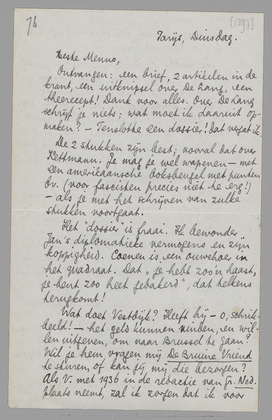 76
[1897]
Parijs, Dinsdag.
Beste Menno,
Ontvangen: een brief, 2 artikelen in de
krant, een uitknipsel over De Lang, een
theerecept! Dank voor alles. Over De Lang
schrijf je niets; wat moet ik daaruit op-
maken? – Tenslotte een dossier! Dat vergat ik.
De 2 stukken zijn best; vooral dat over
Kettmann. Je mag je wel wapenen – met
een amerikaansche boksbeugel met punten
bv. (voor fascisten precies niet te erg!)
– als je met het schrijven van zulke
stukken voortgaat.
Het "dossier" is fraai. Ik bewonder
Jan's diplomatieke vermogens en zijn
koppigheid. Coenen is een ouwehoer in
het quadraat. Dat „je hebt zoo'n haast,
je bent zoo heet gebakerd", dat telkens
terugkomt!
Wat doet Vestdijk? Heeft hij – o, schrik-
beeld! – het geld kunnen vinden, en wil-
len uitgeven, om naar Brussel te gaan?
Wil je hem vragen mij De Bruine Vriend
te sturen, of kan jij mij die bezorgen?
Als V. met 1936 in de redactie van Gr. Ned.
plaats neemt, zal ik zorgen dat ik voor